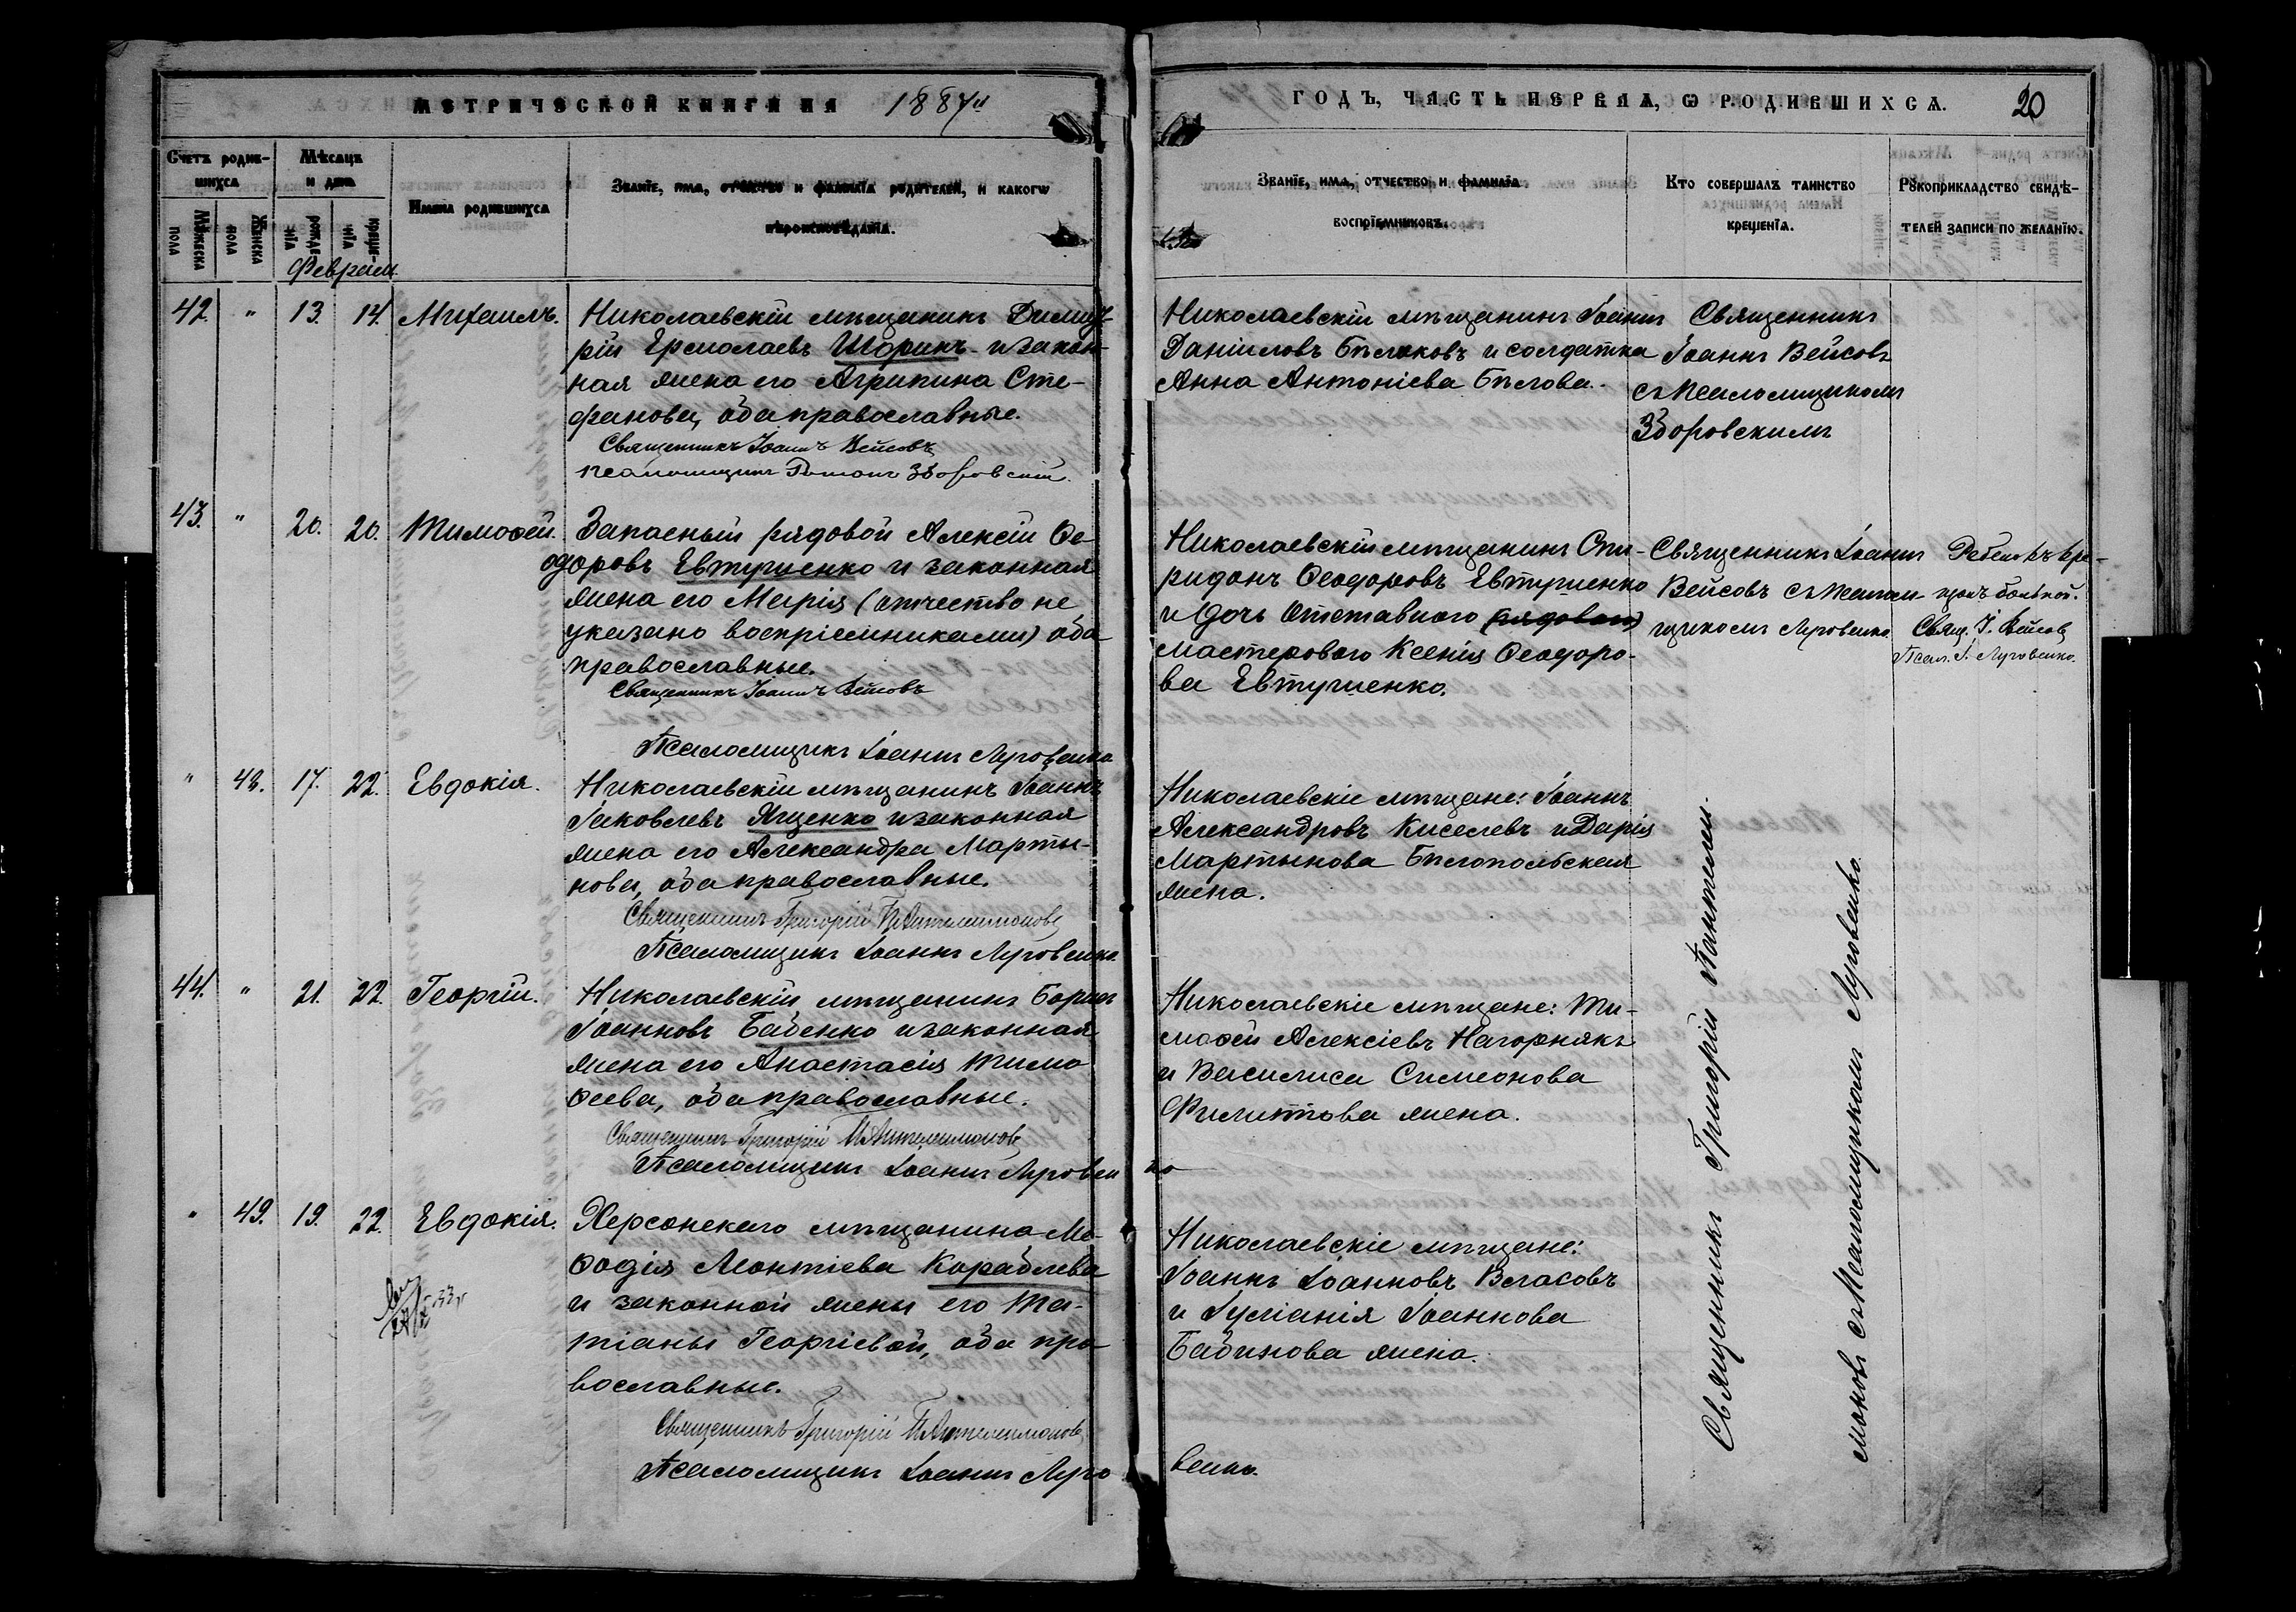 МЕТРИЧЕСКОЙ КНИГИ НА 1887й
ГОДЪ, ЧАСТЬ ПЕРВАЯ, Ѡ РОДИВШИХСѦ. 20
Счетъ родив-
шихсѧ
Мѣсѧцъ
и день
Имена родившихсѧ
Званїе, имѧ, отчество и фамилїѧ родителей, и какогѡ
вѣроисповѣданїѧ.
Званїе, имѧ, отчество и фамилїѧ
воспрїемниковъ.
Кто совершалъ таинство
крещенїѧ.
Рꙋкоприкладство свидѣ-
телей записи по желанїю.
Мꙋжеска
пола
Женска
пола
рожде-
нїѧ
креще-
нїѧ
Феврал.
42. " 13. 14. Михаилъ.
Николаевскій мѣщанинъ Димит-
рій Ермолаевъ Шоринъ и закон-
ная жена его Агрипина Сте-
фанова, оба православные.
Священникъ Іоаннъ Вейсовъ
Псаломщикъ Романъ Зборовскій.
Николаевскій мѣщанинъ Іоаннъ
Даніиловъ Бѣляковъ и солдатка
Анна Антоніева Бѣлова.
Священникъ
Іоаннъ Вейсовъ
съ псаломщикомъ
Зборовскимъ
43. " 20. 20. Тимоѳей.
Запасный рядовой Алексій Ѳе
одоровъ Евтушенко и законная
жена его Марія (отчество не
указано воспріемниками) оба
православные.
Священникъ Іоаннъ Вейсовъ
Псаломщикъ Іоаннъ Луговенко
Николаевскій мѣщанинъ Спи-
ридонъ Ѳеодоровъ Евтушенко
и дочь отставного (рядового)
мастерового Ксенія Ѳеодоро-
ва Евтушенко.
Священникъ Іоаннъ
Вейсовъ съ псалом-
щикомъ Луговенко.
Ребенокъ кре-
щенъ больной.
Свящ. І. Вейсовъ
Псал. І. Луговенко.
" 48. 17. 22. Евдокія.
Николаевскій мѣщанинъ Іоаннъ
Іаковлевъ Ященко и законная
жена его Александра Марты-
нова, оба православные.
Священникъ Григорій Пантелеимоновъ
Псаломщикъ Іоаннъ Луговенко.
Николаевскіе мѣщане: Іоаннъ
Александровъ Киселевъ и Дарія
Мартынова Бѣлопольская
жена.
44. " 21. 22. Георгій.
Николаевскій мѣщанинъ Борисъ
Іоанновъ Бабенко и законная
жена его Анастасія Тимо
ѳеева, оба православные.
Священникъ Григорій Пантелеимоновъ
Псаломщикъ Іоаннъ Луговен ко
Николаевскіе мѣщане: Ти-
моѳей Алексіевъ Нагорнякъ
и Василиса Симеонова
Филиппова жена.
" 49. 19. 22. Евдокія.
Херсонскаго мѣщанина Ме-
ѳодія Леонтіева Кораблева
и законной жены его Та-
тіаны Георгіевой, оба пра-
вославные.
Священникъ Григорій Пантелеимоновъ
Псаломщикъ Іоаннъ Луго венко.
Николаевскіе мѣщане:
Іоаннъ Іоанновъ Власовъ
и Іуліанія Іоаннова
Бабинова жена.
Священникъ Григорій Пантелеи-
моновъ съ псаломщикомъ Луговенко.